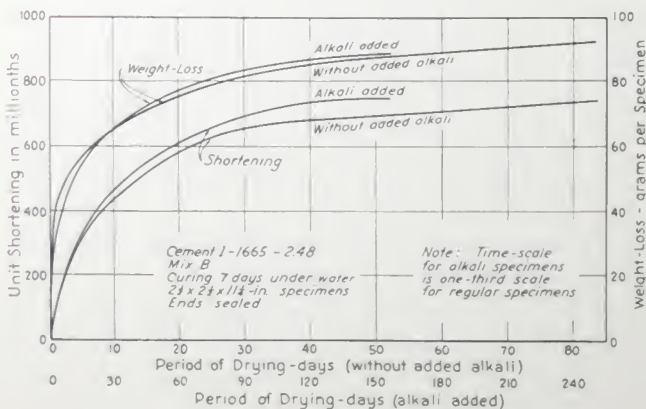 1000
800
600
400
200
0
Unit Shortening in millionths
100
80
60
40
20
0
Weight-Loss - grams per Specimen
Alkali added
Weight-Loss
Without added alkali
Alkali added
Without added alkali
Shortening
Cement 1-1665-2.48
Mix B
Curing 7 days under water
Ends sealed
Note: Time-scale
for alkali specimens
is one-third scale
for regular specimens
0 10 20 30 40 50 60 70 80
Period of Drying-days (without added alkali)
0 30 60 90 120 150 180 210 240
Period of Drying-days (alkali added)